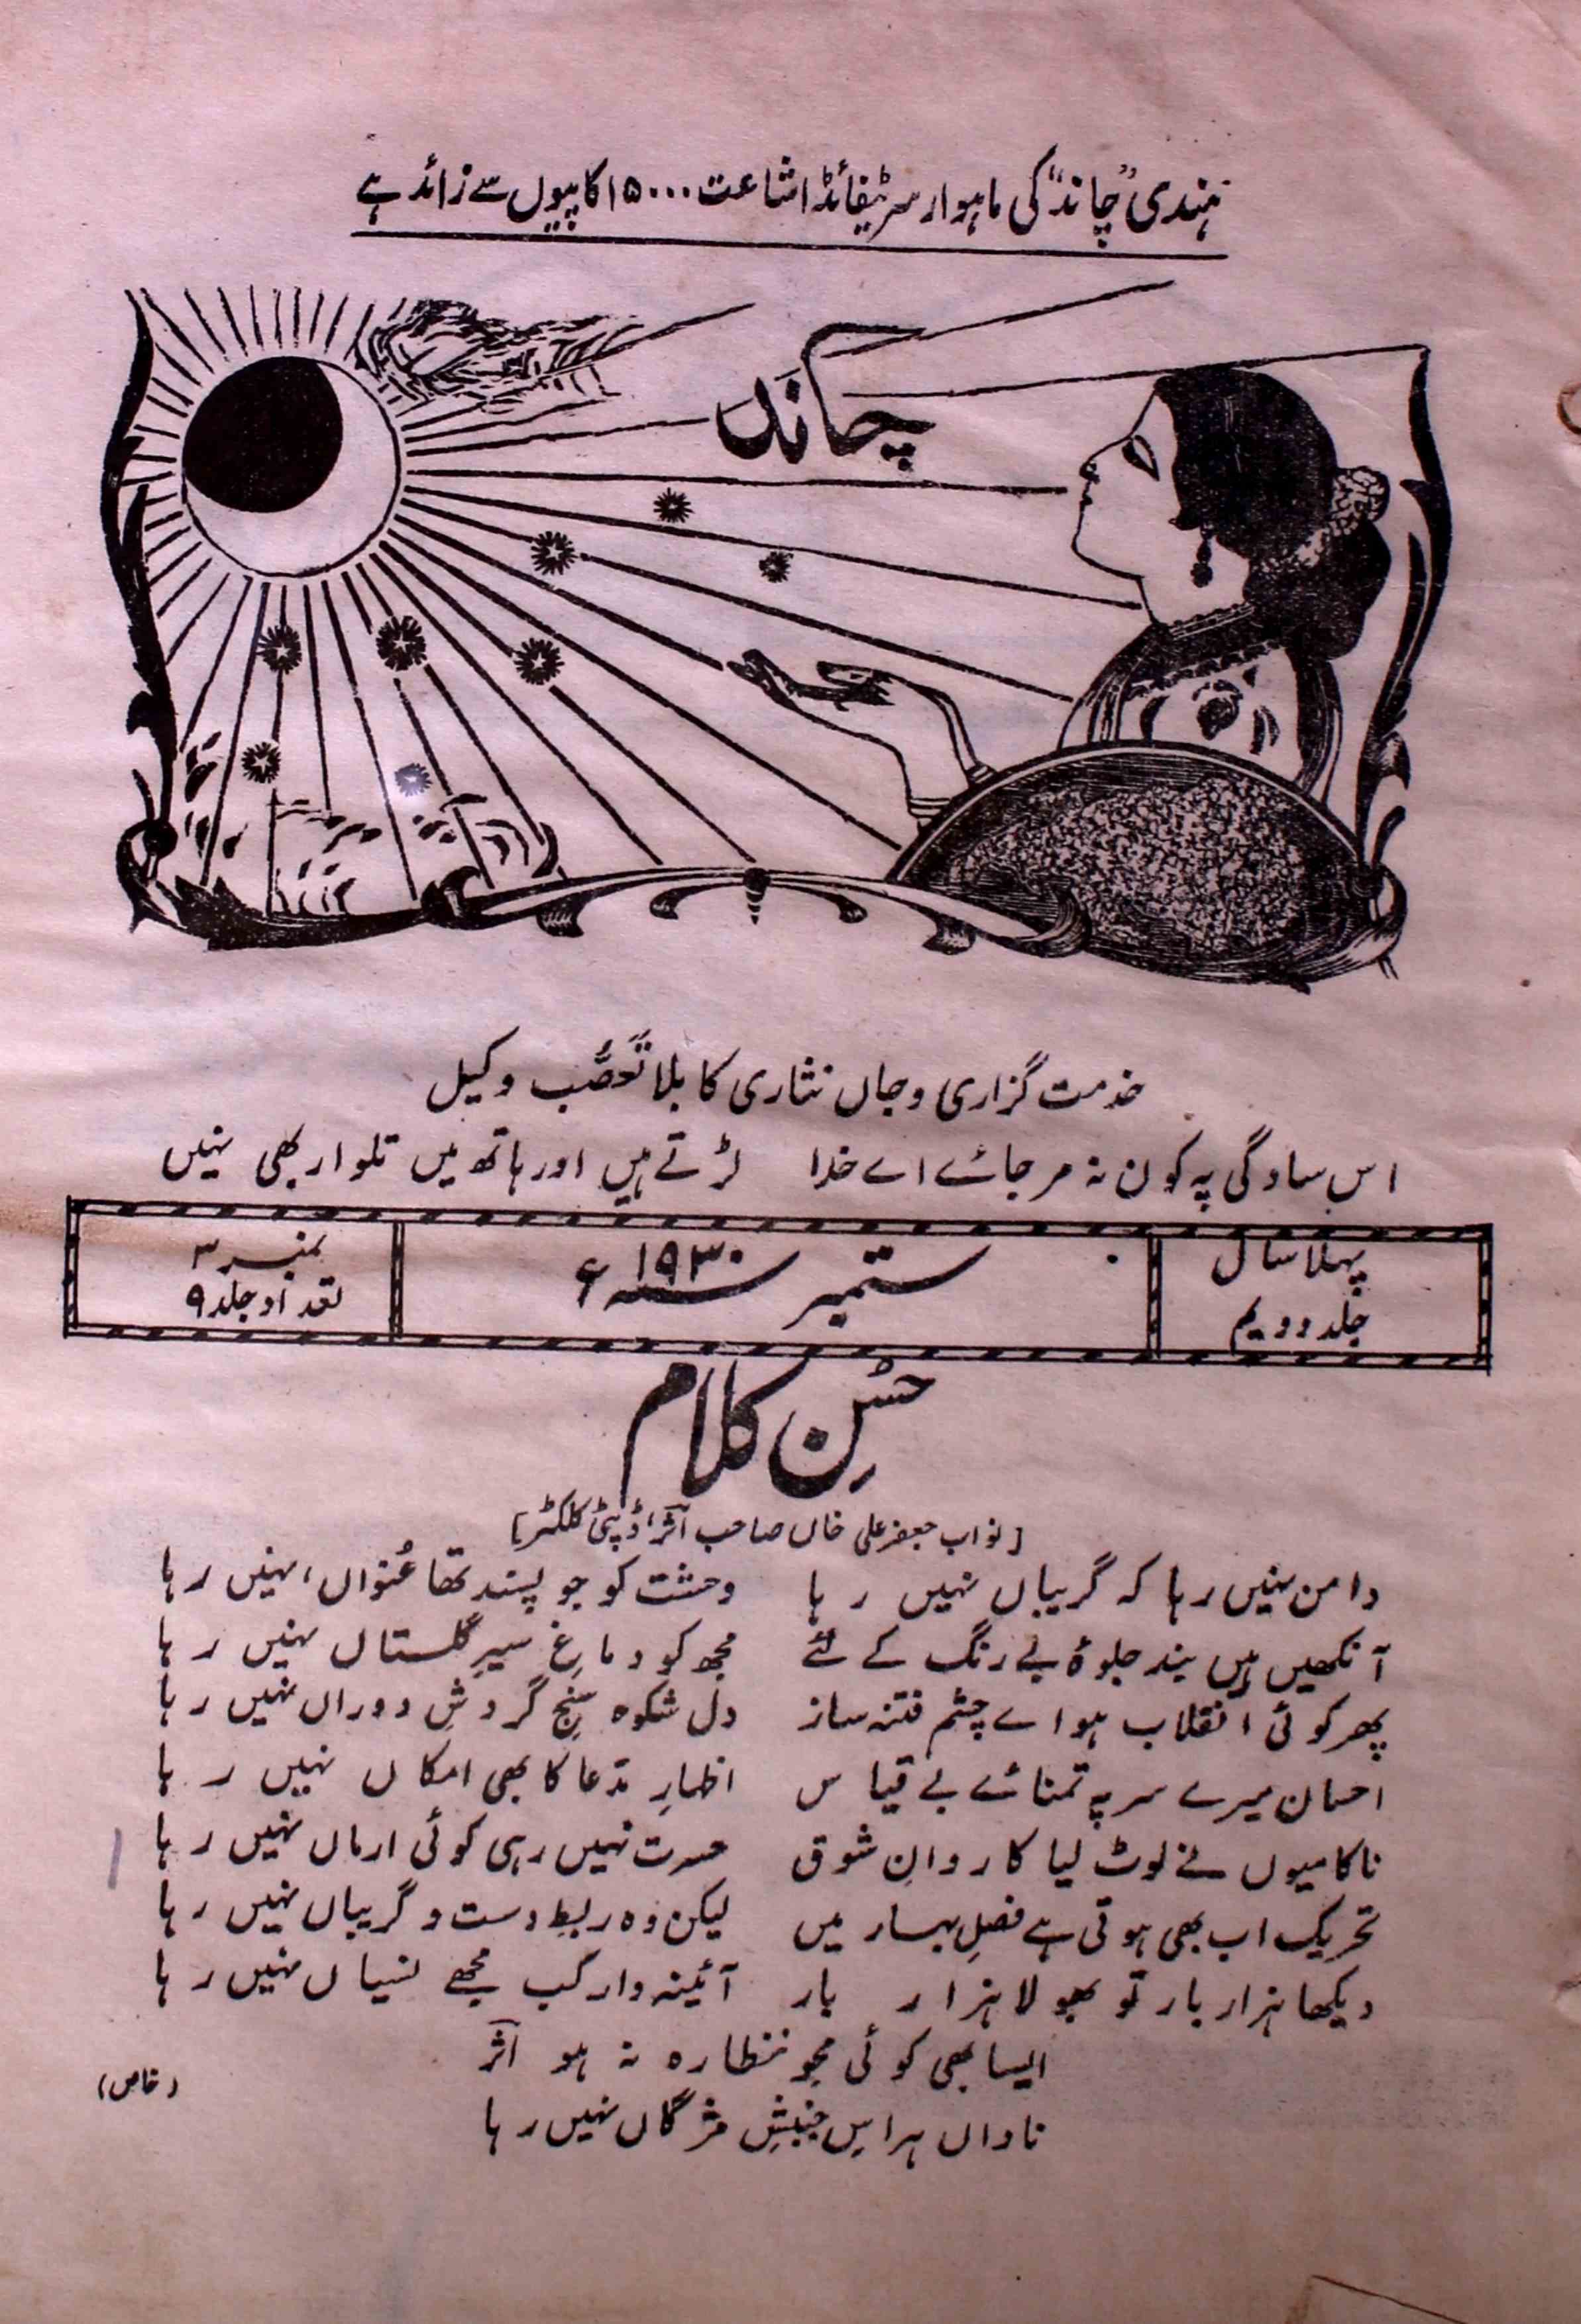 ہندی "چاند" کی ماہوار سرٹیفائڈ اشاعت ۱۵۰۰۰ کاپیوں سے زائد ہے
چاند
خدمت گزاری و جاں نثاری کا بلا تعصُّب وکیل
اس سادگی پہ کون نہ مر جائے اے خدا لڑتے ہیں اور ہاتھ میں تلوار بھی نہیں
پہلا سال
جلد دویم
ستمبر سنہ ۱۹۳۰ء
نمبر ۳
تعداد جلد ۹
حسنِ کلام
[نواب جعفر علی خاں صاحب اثرؔ، ڈپٹی کلکٹر]
دامن نہیں رہا کہ گریباں نہیں رہا وحشت کو جو پسند تھا عُنواں، نہیں رہا
آنکھیں ہیں بند جلوۂ بے رنگ کے لئے مجھ کو دماغِ سیرِ گلستاں نہیں رہا
پھر کوئی انقلاب ہو اے چشم فتنہ ساز دل شکوہ سنجِ گردشِ دوراں نہیں رہا
احسان میرے سر پہ تمنائے بے قیاس اظہارِ مدّعا کا بھی امکاں نہیں رہا
ناکامیوں نے لوٹ لیا کاروانِ شوق حسرت نہیں رہی کوئی ارماں نہیں رہا
تحریک اب بھی ہوتی ہے فصلِ بہار میں لیکن وہ ربطِ دست و گریباں نہیں رہا
دیکھا ہزار بار تو بھولا ہزار بار آئینہ وار کب مجھے نسیاں نہیں رہا
ایسا بھی کوئی محوِ نظارہ نہ ہو اثرؔ
ناداں ہراسِ جنبشِ مژگاں نہیں رہا
(خاص)